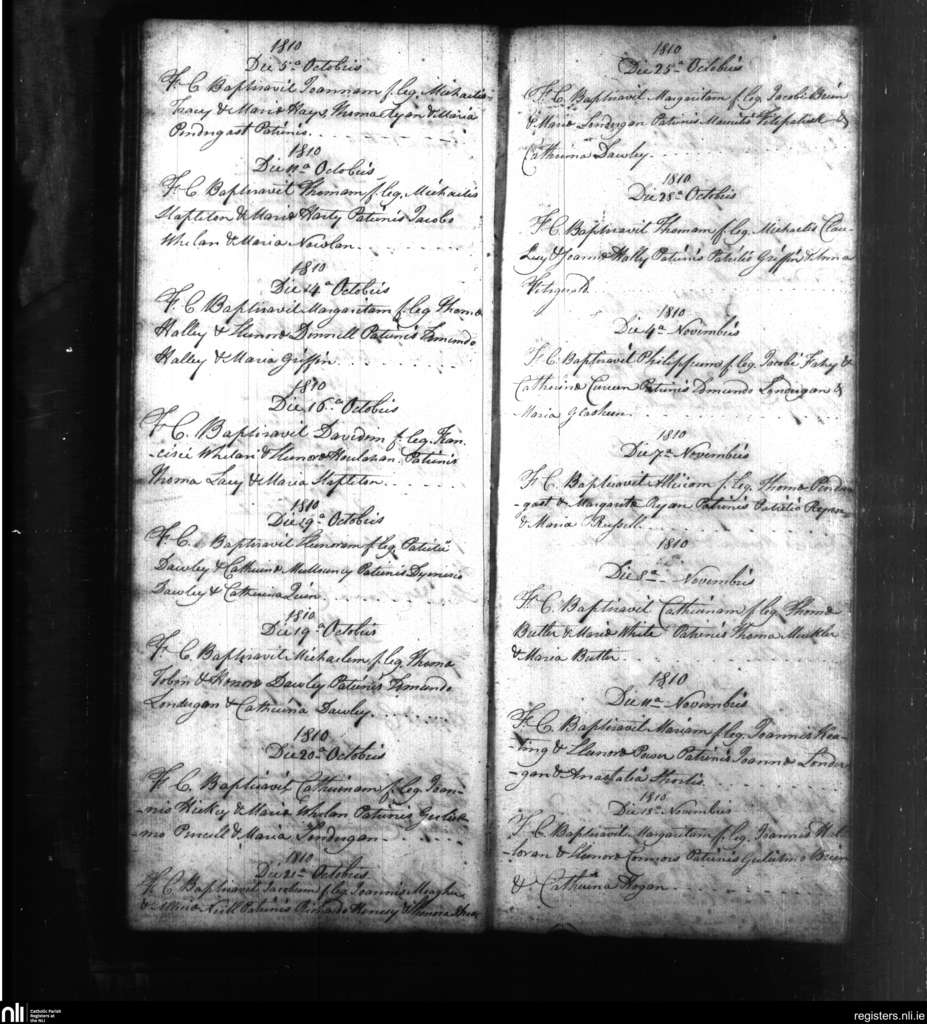 1810
Die 5a Octobris
F C Baptizavit Joannam f. leg. Michaelis
Tracy & Maria Hays, Thoma Ryan & Maria
Pendergast Patrinis.
1810
Die 11a Octobris
F C Baptizavit Thomam f. leg. Michaelis
Stapleton & Maria Harty Patrinis Jacobo
Whelan & Maria Nowlan.
1810
Die 14a Octobris
F. C Baptizavit Margaritam f. leg Thoma
Halley & Elenora Donnell Patrinis Edmundo
Halley & Maria Griffin.
1810
Die 16a Octobris
F C. Baptizavit Davidem f. leg. Fran-
-cisci Whelan & Elenora Houlahan. Patrinis
Thoma Lacy & Maria Stapleton.
1810
Die 19a Octobris
F C. Baptizavit Elenoram f. leg Patritii
Dawley & Catherina Patrinis Dyonisio
Dawley & Catherina Quin.
1810
Die 19a Octobris
F C. Baptizavit Michaelem f. leg. Thoma
Tobin & Honora Dawley Patrinis Edmundo
Londergan & Catherina Dawley.
1810
Die 20a Octobris
F C. Baptizavit Catherinam f. leg Joan-
-nis Hickey & Maria Whelan Patrinis Guliel-
-mo Purcell & Maria Londergan.
1810
Die 21a Octobris
F C. Baptizavit Jacobum f. leg Joannis Meagher
& Maria Neill Patrinis Richardo Henesy & Elenora
1810
Die 25a Octobris
F. C. Baptizavit Margaritam f. leg. Jacobi Brien
& Maria Londergan Patrinis Mauritio Fitzpatrick &
Catherina Dawley.
1810
Die 28a Octobris
F C Baptizavit Thomam f. leg. Michaelis Clan-
& Joanna Halley Patrinis Patritio Griffin & Anna
Fitzgerald
1810
Die 4a Novembris
F. C. Baptizavit Philippum f. leg. Jacobi Fahy &
Catherina Curren Patrinis Edmundo Londergan &
Maria Glasheen.
1810
Die 7a Novembris
F C. Baptizavit f. leg. Thoma Pender-
-gast & Margarita Ryan Patrinis Patritio Ryan
& Maria Russell.
1810
Die 8a Novembris
F. C. Baptizavit Catherinam f. leg Thoma
Butler & Maria White Patrinis Thoma Meckler
& Maria Butler.
1810
Die 11a Novembris
F C. Baptizavit Mariam f. leg. Joannis Kea-
-ting & Elenora Power Patrinis Joanne Londer-
-gan & Anastasia Shortis.
1810
Die 18a Novembris
F C. Baptizavit Margaritam f. leg. Joannis Hal-
-loran & Elenora Connors Patrinis Gulielmo Brien
& Catherina Hogan
nli
Catholic Parish
Registers at
the NLI
registers.nli.ie